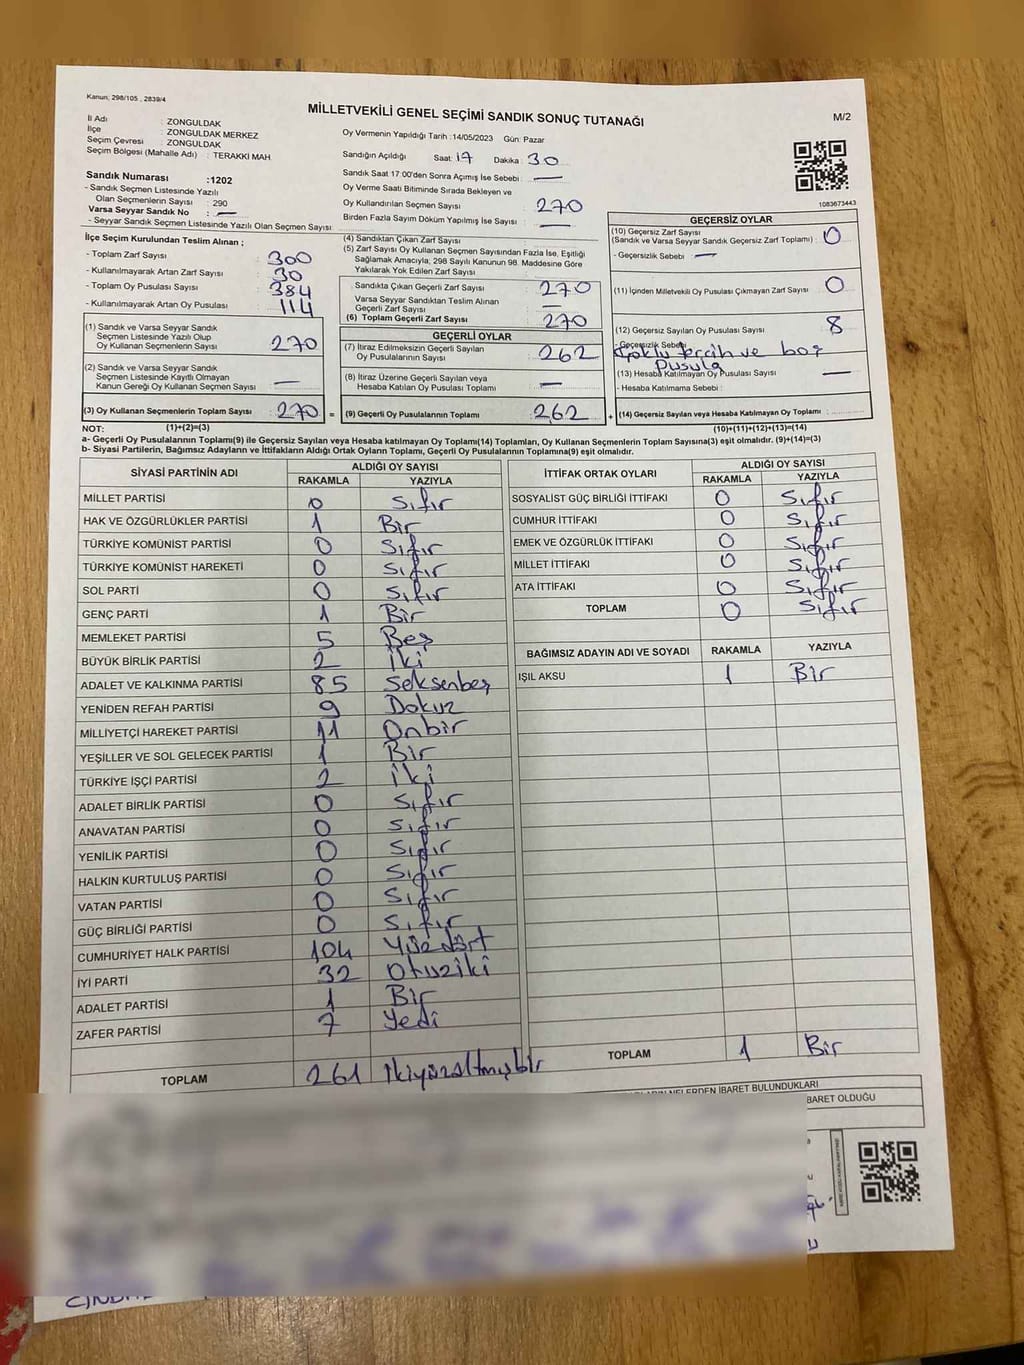 Kanun; 298/105 , 2839/4
MİLLETVEKİLİ GENEL SEÇİMİ SANDIK SONUÇ TUTANAĞI
M/2
İl Adı : ZONGULDAK
İlçe : ZONGULDAK MERKEZ
Seçim Çevresi : ZONGULDAK
Seçim Bölgesi (Mahalle Adı) : TERAKKİ MAH
Sandık Numarası :1202
- Sandık Seçmen Listesinde Yazılı
Olan Seçmenlerin Sayısı : 290
Varsa Seyyar Sandık No : —
- Seyyar Sandık Seçmen Listesinde Yazılı Olan Seçmen Sayısı:
Oy Vermenin Yapıldığı Tarih :14/05/2023 Gün: Pazar
Sandığın Açıldığı Saat: 17 Dakika : 30
Sandık Saat 17:00'den Sonra Açımış İse Sebebi : —
Oy Verme Saati Bitiminde Sırada Bekleyen ve
Oy Kullandırılan Seçmen Sayısı : 270
Birden Fazla Sayım Döküm Yapılmış İse Sayısı : —
1083673443
İlçe Seçim Kurulundan Teslim Alınan ;
- Toplam Zarf Sayısı : 300
- Kullanılmayarak Artan Zarf Sayısı : 30
- Toplam Oy Pusulası Sayısı : 384
- Kullanılmayarak Artan Oy Pusulası : 114
(1) Sandık ve Varsa Seyyar Sandık
Seçmen Listesinde Yazılı Olup
Oy Kullanan Seçmenlerin Sayısı : 270
(2) Sandık ve Varsa Seyyar Sandık
Seçmen Listesinde Kayıtlı Olmayan
Kanun Gereği Oy Kullanan Seçmen Sayısı : —
(3) Oy Kullanan Seçmenlerin Toplam Sayısı : 270 =
(4) Sandıktan Çıkan Zarf Sayısı :
(5) Zarf Sayısı Oy Kullanan Seçmen Sayısından Fazla İse, Eşitliği
Sağlamak Amacıyla; 298 Sayılı Kanunun 98. Maddesine Göre
Yakılarak Yok Edilen Zarf Sayısı :
Sandıkta Çıkan Geçerli Zarf Sayısı : 270
Varsa Seyyar Sandıktan Teslim Alınan
Geçerli Zarf Sayısı : —
(6) Toplam Geçerli Zarf Sayısı : 270
GEÇERLİ OYLAR
(7) İtiraz Edilmeksizin Geçerli Sayılan
Oy Pusulalarının Sayısı : 262
(8) İtiraz Üzerine Geçerli Sayılan veya
Hesaba Katılan Oy Pusulası Toplamı : —
(9) Geçerli Oy Pusulalarının Toplamı : 262 +
GEÇERSİZ OYLAR
(10) Geçersiz Zarf Sayısı
(Sandık ve Varsa Seyyar Sandık Geçersiz Zarf Toplamı) : 0
- Geçersizlik Sebebi : —
(11) İçinden Milletvekili Oy Pusulası Çıkmayan Zarf Sayısı : 0
(12) Geçersiz Sayılan Oy Pusulası Sayısı : 8
- Geçersizlik Sebebi
Çoklu tercih ve boş
pusula
(13) Hesaba Katılmayan Oy Pusulası Sayısı : —
- Hesaba Katılmama Sebebi :
(14) Geçersiz Sayılan veya Hesaba Katılmayan Oy Toplamı :
NOT: (1)+(2)=(3) (10)+(11)+(12)+(13)=(14)
a- Geçerli Oy Pusulalarının Toplamı(9) ile Geçersiz Sayılan veya Hesaba katılmayan Oy Toplamı(14) Toplamları, Oy Kullanan Seçmenlerin Toplam Sayısına(3) eşit olmalıdır. (9)+(14)=(3)
b- Siyasi Partilerin, Bağımsız Adayların ve İttifakların Aldığı Ortak Oyların Toplamı, Geçerli Oy Pusulalarının Toplamına(9) eşit olmalıdır.
SİYASİ PARTİNİN ADI ALDIĞI OY SAYISI
RAKAMLA YAZIYLA
MİLLET PARTİSİ 0 Sıfır
HAK VE ÖZGÜRLÜKLER PARTİSİ 1 Bir
TÜRKİYE KOMÜNİST PARTİSİ 0 Sıfır
TÜRKİYE KOMÜNİST HAREKETİ 0 Sıfır
SOL PARTİ 0 Sıfır
GENÇ PARTİ 1 Bir
MEMLEKET PARTİSİ 5 Beş
BÜYÜK BİRLİK PARTİSİ 2 İki
ADALET VE KALKINMA PARTİSİ 85 Seksenbeş
YENİDEN REFAH PARTİSİ 9 Dokuz
MİLLİYETÇİ HAREKET PARTİSİ 11 Onbir
YEŞİLLER VE SOL GELECEK PARTİSİ 1 Bir
TÜRKİYE İŞÇİ PARTİSİ 2 İki
ADALET BİRLİK PARTİSİ 0 Sıfır
ANAVATAN PARTİSİ 0 Sıfır
YENİLİK PARTİSİ 0 Sıfır
HALKIN KURTULUŞ PARTİSİ 0 Sıfır
VATAN PARTİSİ 0 Sıfır
GÜÇ BİRLİĞİ PARTİSİ 0 Sıfır
CUMHURİYET HALK PARTİSİ 104 Yüzdört
İYİ PARTİ 32 Otuziki
ADALET PARTİSİ 1 Bir
ZAFER PARTİSİ 7 Yedi
TOPLAM 261 İkiyüzaltmışbir
İTTİFAK ORTAK OYLARI ALDIĞI OY SAYISI
RAKAMLA YAZIYLA
SOSYALİST GÜÇ BİRLİĞİ İTTİFAKI 0 Sıfır
CUMHUR İTTİFAKI 0 Sıfır
EMEK VE ÖZGÜRLÜK İTTİFAKI 0 Sıfır
MİLLET İTTİFAKI 0 Sıfır
ATA İTTİFAKI 0 Sıfır
TOPLAM 0 Sıfır
BAĞIMSIZ ADAYIN ADI VE SOYADI RAKAMLA YAZIYLA
IŞIL AKSU 1 Bir
TOPLAM 1 Bir
NELERDEN İBARET BULUNDUKLARI
BARET OLDUĞU